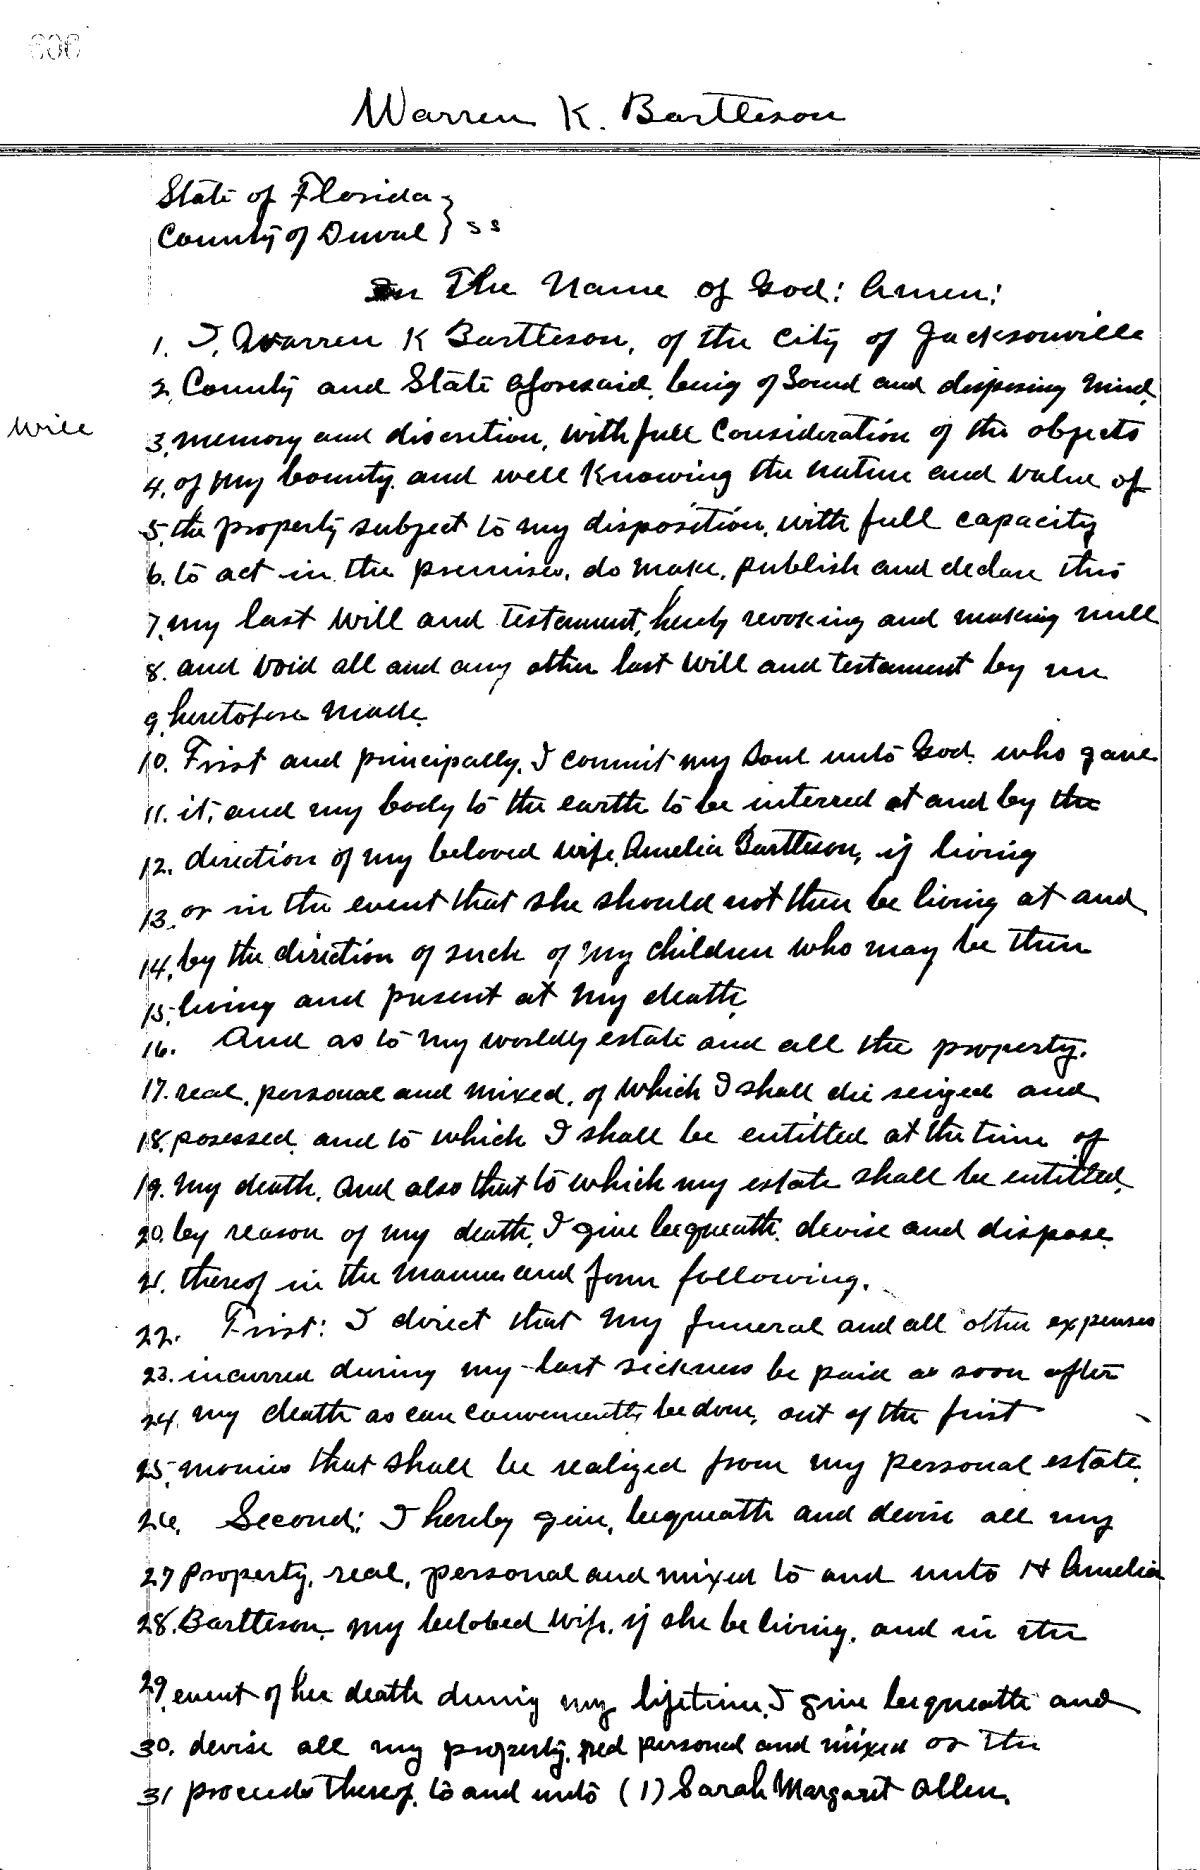 606
Warren K. Bartleson
State of Florida }
County of Duval } ss
In The Name of God: Amen:
1. I, Warren K Bartleson, of the City of Jacksonville
2. County and State aforesaid, being of Sound and disposing Mind,
Will
3. memory and discretion, with full Consideration of the objects
4. of my bounty, and well Knowing the nature and value of
5. the property subject to my disposition, with full capacity
6. to act in the premises, do make, publish and declare this
7. my last Will and testament, hereby revoking and making null
8. and void all and any other last Will and testament by me
9. heretofore made.
10. First and principally, I commit my Soul unto God, who gave
11. it, and my body to the earth to be interred at and by the
12. direction of my beloved wife, Amelia Bartleson, if living
13. or in the event that she should not then be living at and
14. by the direction of such of my children who may be then
15. living and present at my death.
16. And as to my worldly estate and all the property,
17. real, personal and mixed, of which I shall die seized and
18. posessed, and to which I shall be entitled at the time of
19. My death, and also that to which my estate shall be entitled,
20. by reason of my death, I give bequeath, devise and dispose
21. thereof in the manner and form following.
22. First: I direct that my funeral and all other expenses
23. incurred during my last sickness be paid as soon after
24. my death as can conveniently be done, out of the first
25. monies that shall be realized from my personal estate.
26. Second: I hereby give, bequeath and devise all my
27 property, real, personal and mixed to and unto H Amelia
28. Bartleson, my belobed Wife, if she be living, and in the
29. event of her death during my lifetime, I give bequeath and
30. devise all my property, real personal and mixed or the
31 proceeds thereof, to and unto (1) Sarah Margaret Allen,